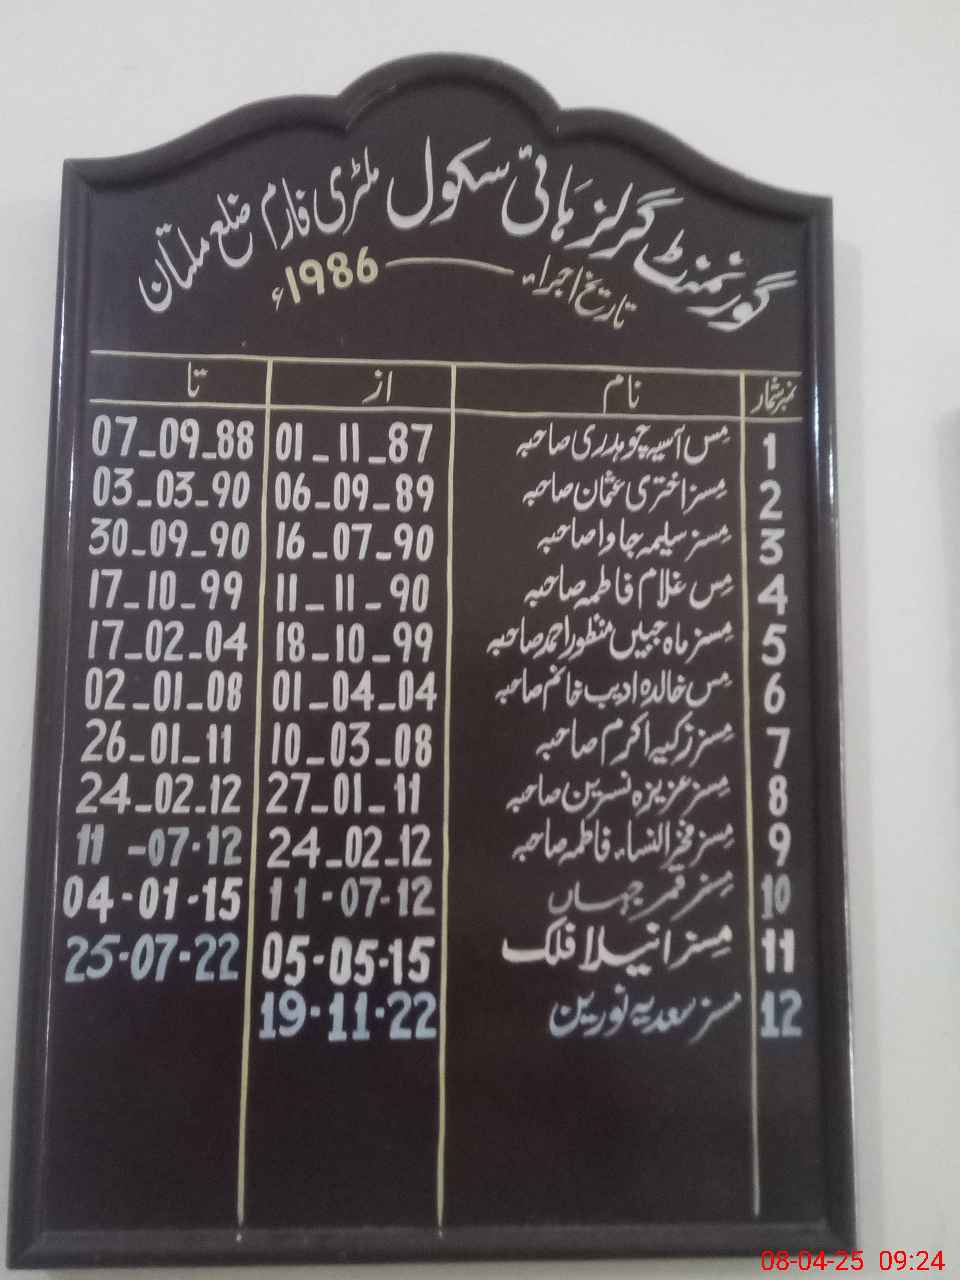 گورنمنٹ گرلز ہائی سکول ملٹری فارم ضلع ملتان
تاریخ اجراء 1986ء
نمبر شمار نام از تا
1 مس آسیہ چوہدری صاحبہ 01_11_87 07_09_88
2 مسز اختری عثمان صاحبہ 06_09_89 03_03_90
3 مسز سلیمہ جاوا صاحبہ 16_07_90 30_09_90
4 مس غلام فاطمہ صاحبہ 11_11_90 17_10_99
5 مسز ماہ جبیں منظور احمد صاحبہ 18_10_99 17_02_04
6 مس خالدہ ادیب خانم صاحبہ 01_04_04 02_01_08
7 مسز زکیہ اکرم صاحبہ 10_03_08 26_01_11
8 مسز عزیزہ نسرین صاحبہ 27_01_11 24_02_12
9 مسز فخر النساء فاطمہ صاحبہ 24_02_12 11-07-12
10 مسز قمر جہاں 11-07-12 04-01-15
11 مسز انیلا فلک 05-05-15 25-07-22
12 مسز سعدیہ نورین 19-11-22
08-04-25 09:24